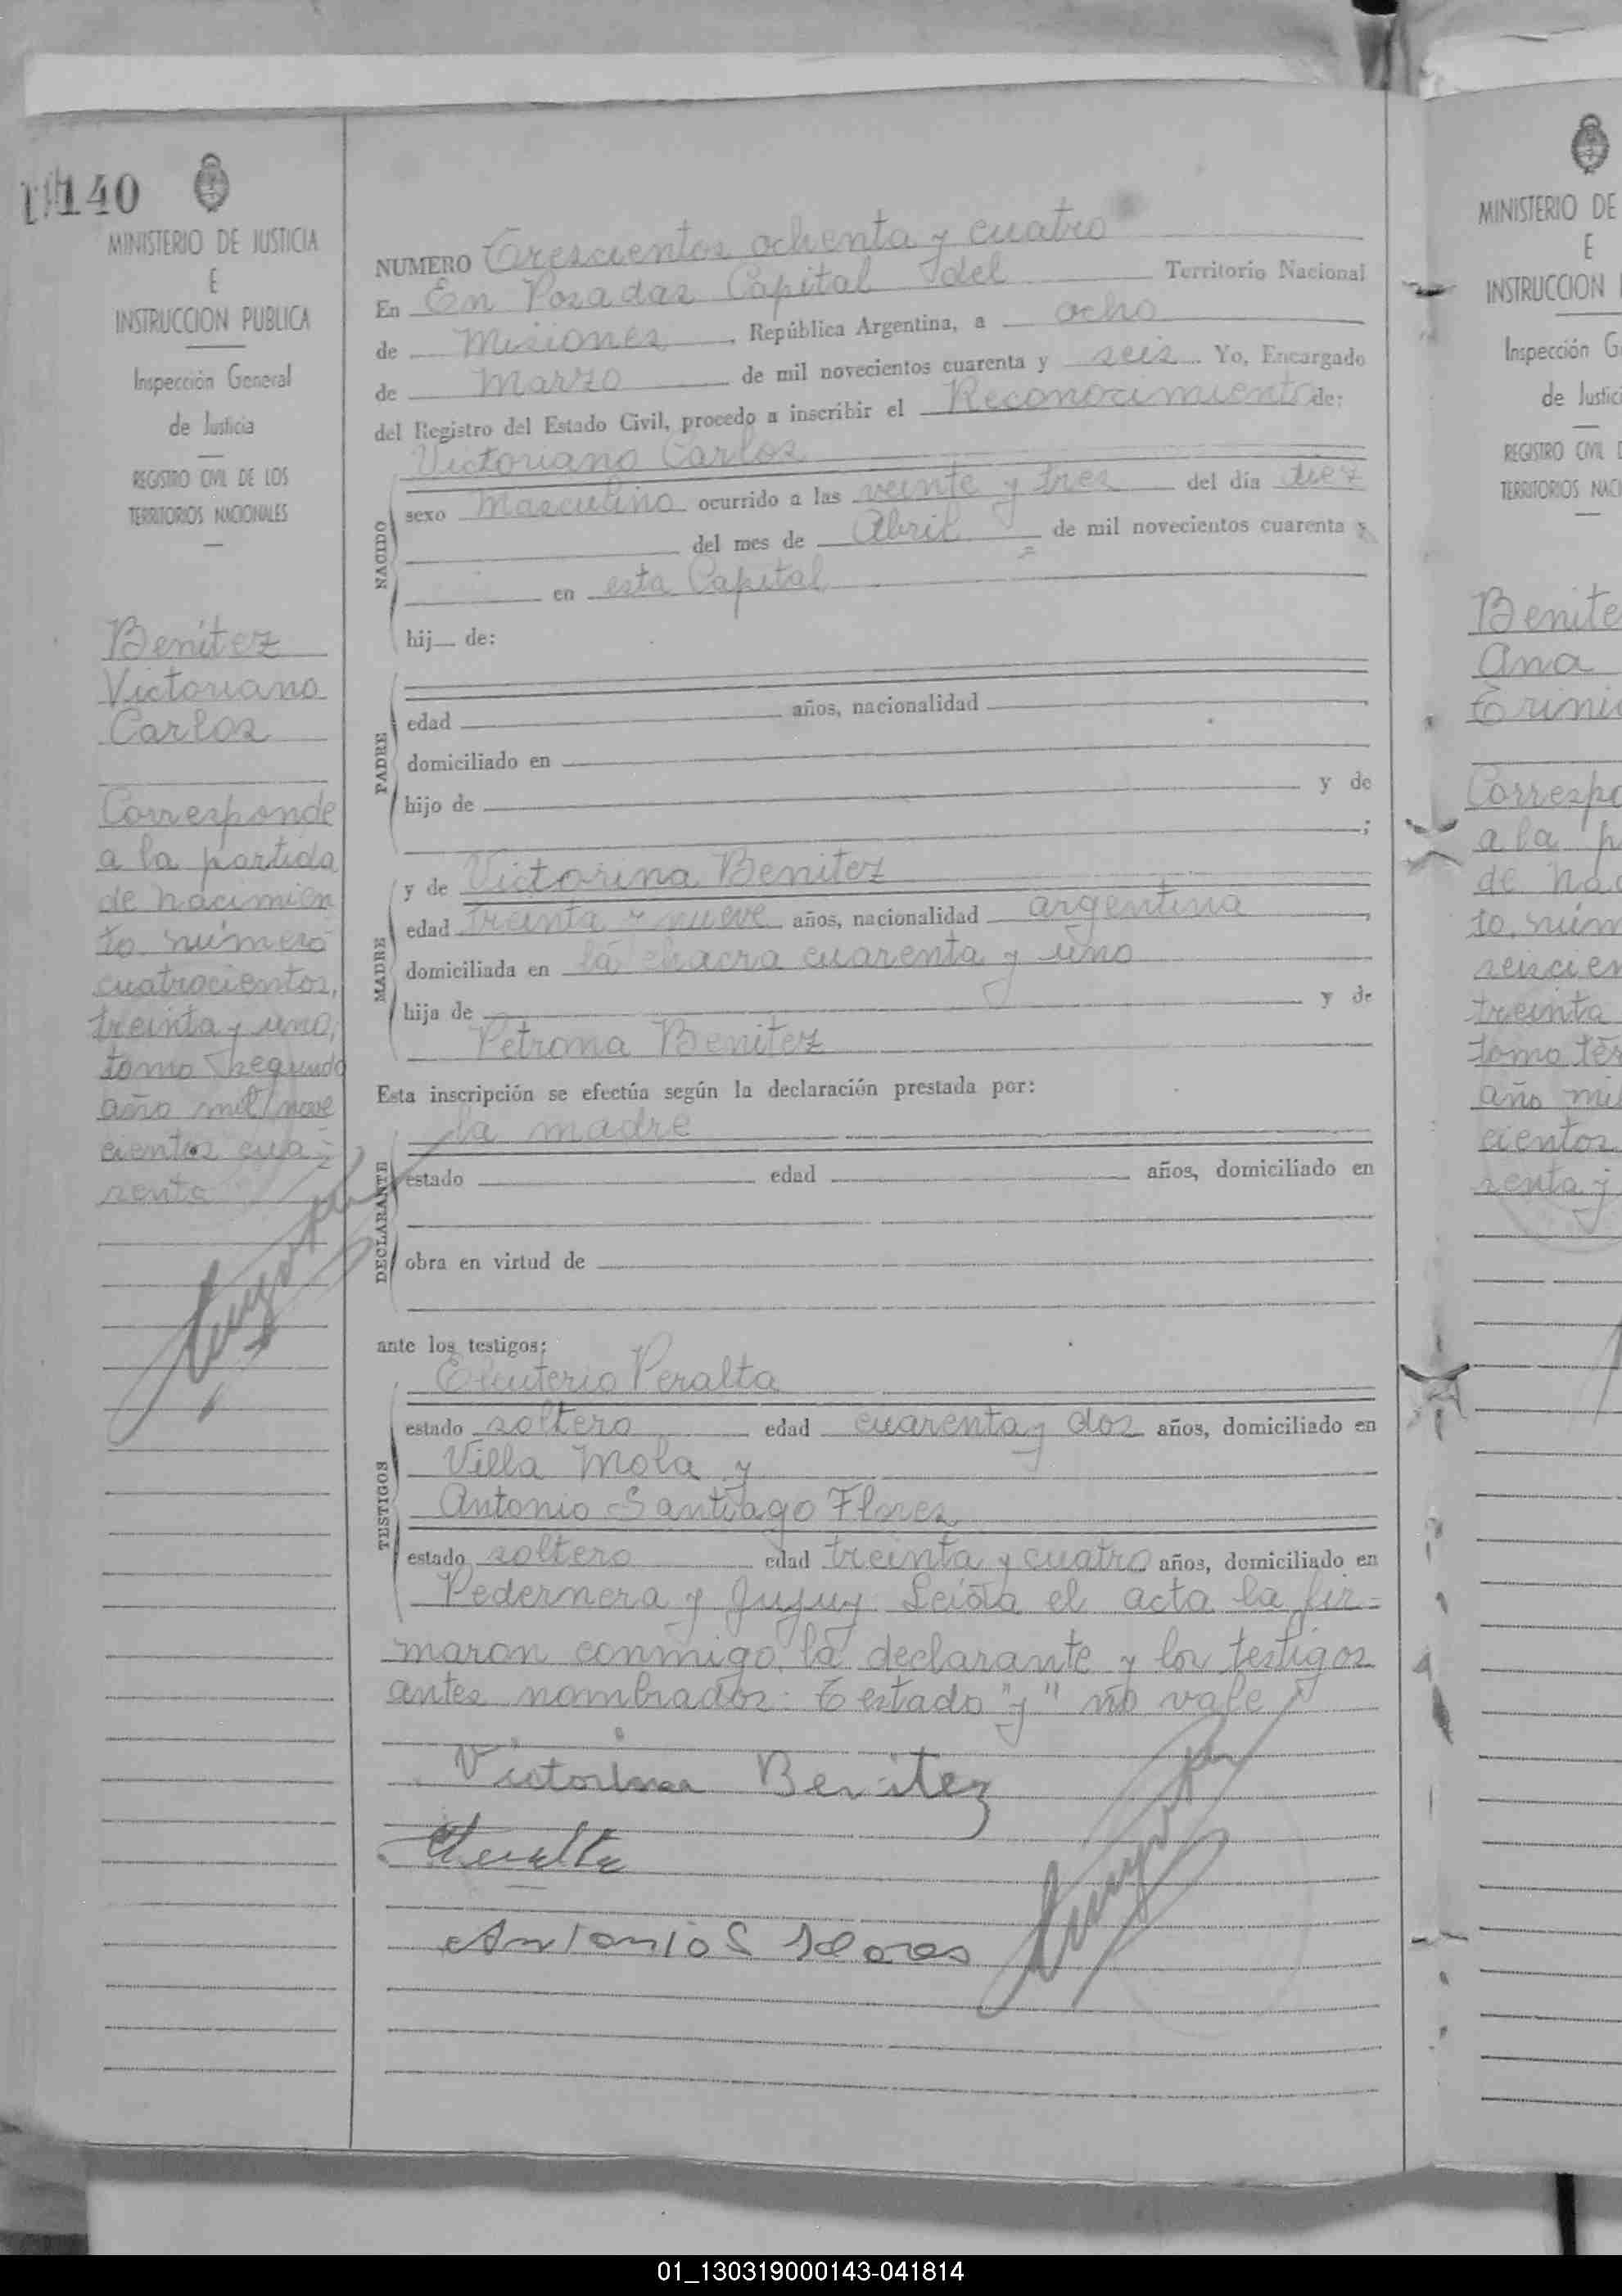 140
MINISTERIO DE JUSTICIA
E
INSTRUCCION PUBLICA
Inspección General
de Justicia
REGISTRO CIVIL DE LOS
TERRITORIOS NACIONALES
Benítez
Victoriano
Carlos
Corresponde
a la partida
de nacimien
to número
cuatrocientos,
treinta y uno,
tomo segundo
año mil nove
cientos cua-
renta
NUMERO Trescientos ochenta y cuatro
En En Posadas Capital del Territorio Nacional
de Misiones, República Argentina, a ocho
de Marzo de mil novecientos cuarenta y seis. Yo, Encargado
del Registro del Estado Civil, procedo a inscribir el Reconocimiento de:
Victoriano Carlos
NACIDO
sexo Masculino ocurrido a las veinte y tres del día diez
del mes de Abril de mil novecientos cuarenta y
en esta Capital
hij de:
PADRE
edad años, nacionalidad
domiciliado en
hijo de y de
;
MADRE
y de Victorina Benitez
edad treinta y nueve años, nacionalidad argentina,
domiciliada en la chacra cuarenta y uno
hija de y de
Petrona Benitez
Esta inscripción se efectúa según la declaración prestada por:
la madre
DECLARANTE
estado edad años, domiciliado en
obra en virtud de
ante los testigos:
Eleuterio Peralta
TESTIGOS
estado soltero edad cuarenta y dos años, domiciliado en
Villa Mola y
Antonio Santiago Flores
estado soltero edad treinta y cuatro años, domiciliado en
Pedernera y Jujuy. Leída el acta la fir-
maron conmigo, la declarante y los testigos
antes nombrados. Testado "y" no vale
Victorina Benitez
Antonio S Flores
MINISTERIO DE
E
INSTRUCCION
Inspección G
de Justici
REGISTRO CIVIL D
TERRITORIOS NACI
Benite
Ana
Trini
Correspo
a la p
de nac
to, núm
seiscien
treinta
tomo ter
año mil
cientos
renta y
01_130319000143-041814